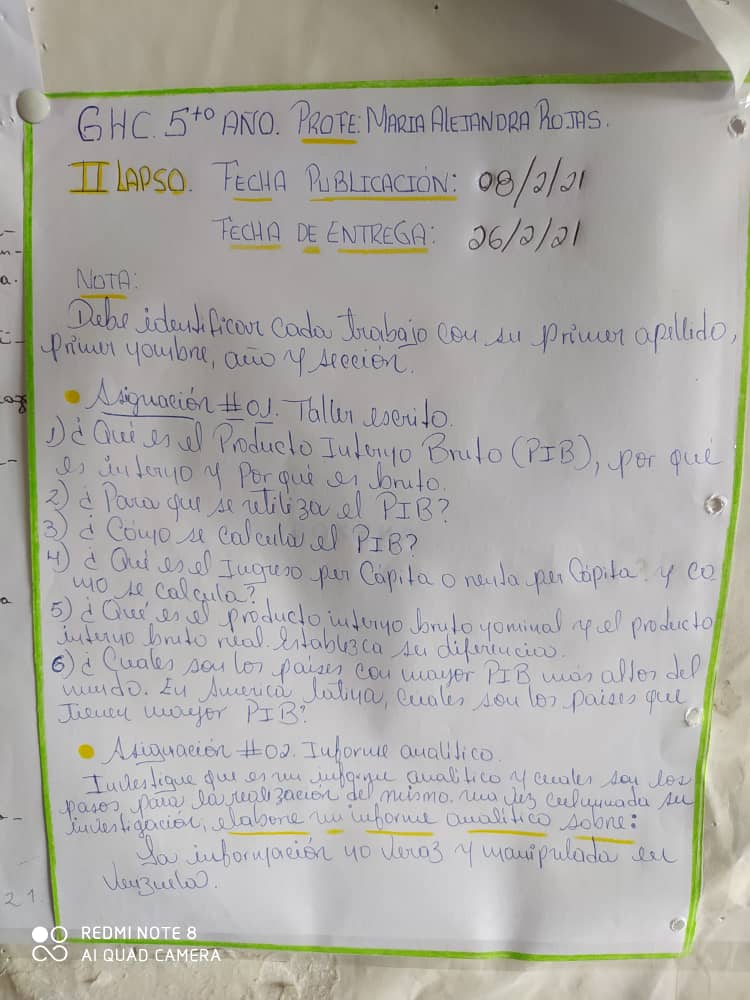 GHC. 5to AÑO. PROFE: MARIA ALEJANDRA ROJAS.
II LAPSO. FECHA PUBLICACIÓN: 08/2/21
FECHA DE ENTREGA: 26/2/21
NOTA:
Debe identificar cada trabajo con su primer apellido,
primer nombre, año y sección.
• Asignación #01. Taller escrito.
1) ¿Qué es el Producto Interno Bruto (PIB), por qué
es interno y Por qué es bruto.
2) ¿Para que se utiliza el PIB?
3) ¿Cómo se calcula el PIB?
4) ¿Qué es el Ingreso per Cápita o renta per Cápita? y co
mo se calcula?
5) ¿Qué es el producto interno bruto nominal y el producto
interno bruto real. Establezca su diferencia.
6) ¿Cuales son los países con mayor PIB más altos del
mundo. En America latina, cuales son los paises que
tienen mayor PIB?
• Asignación #02. Informe analitico.
Investigue que es un informe analitico y cuales son los
pasos para la realización del mismo. una vez culminada su
investigación, elabore un informe analitico sobre:
La información no veraz y manipulada en
Venezuela.
21.
REDMI NOTE 8
AI QUAD CAMERA